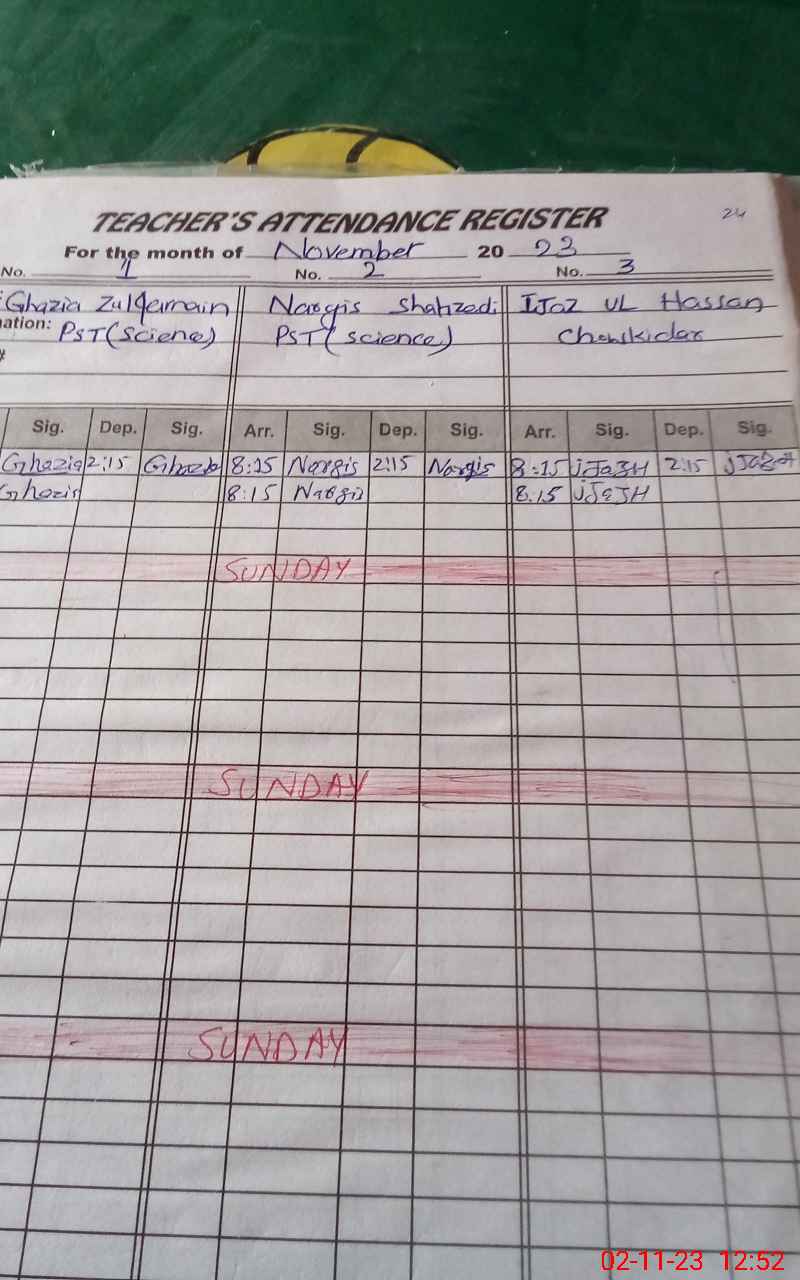 TEACHER'S ATTENDANCE REGISTER 24
For the month of November 20 23
No. 1 No. 2 No. 3
Ghazia Zulqernain Nargis Shahzedi IJaz UL Hassan
ation: PST(Science) PST(science) Chowkidar
Sig. Dep. Sig. Arr. Sig. Dep. Sig. Arr. Sig. Dep. Sig.
Ghazia 2:15 8:15 Nargis 2:15 Nargis 8:15 2:15
8:15 Nargis 8.15
SUNDAY
SUNDAY
SUNDAY
02-11-23 12:52